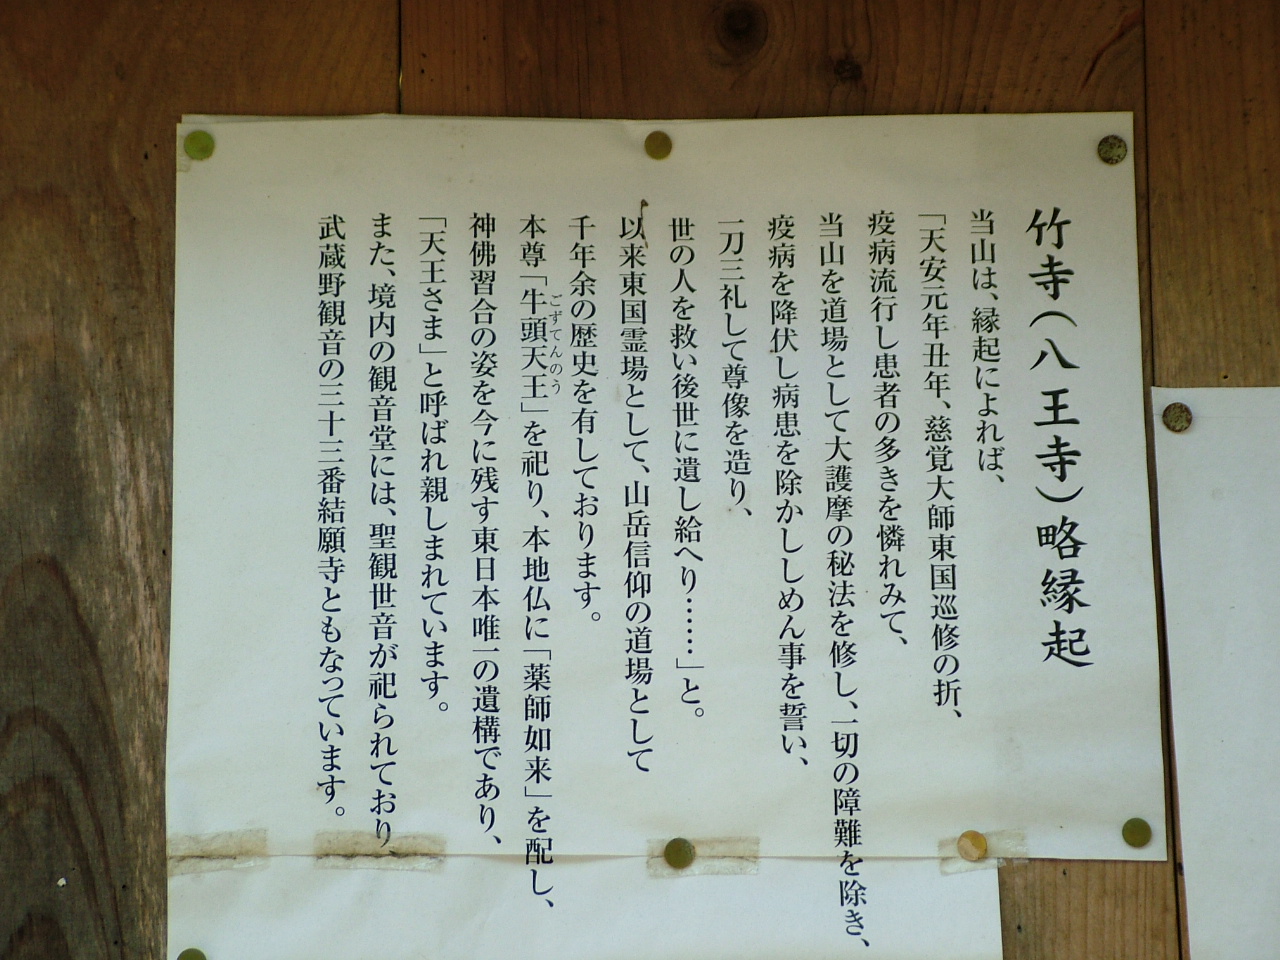 竹寺（八王寺）略縁起
当山は、縁起によれば、
「天安元年丑年、慈覚大師東国巡修の折、
疫病流行し患者の多きを憐れみて、
当山を道場として大護摩の秘法を修し、一切の障難を除き、
疫病を降伏し病患を除かししめん事を誓い、
一刀三礼して尊像を造り、
世の人を救い後世に遺し給へり……」と。
以来東国霊場として、山岳信仰の道場として
千年余の歴史を有しております。
本尊「牛頭天王」を祀り、本地仏に「薬師如来」を配し、
ごずてんのう
神佛習合の姿を今に残す東日本唯一の遺構であり、
「天王さま」と呼ばれ親しまれています。
また、境内の観音堂には、聖観世音が祀られており、
武蔵野観音の三十三番結願寺ともなっています。